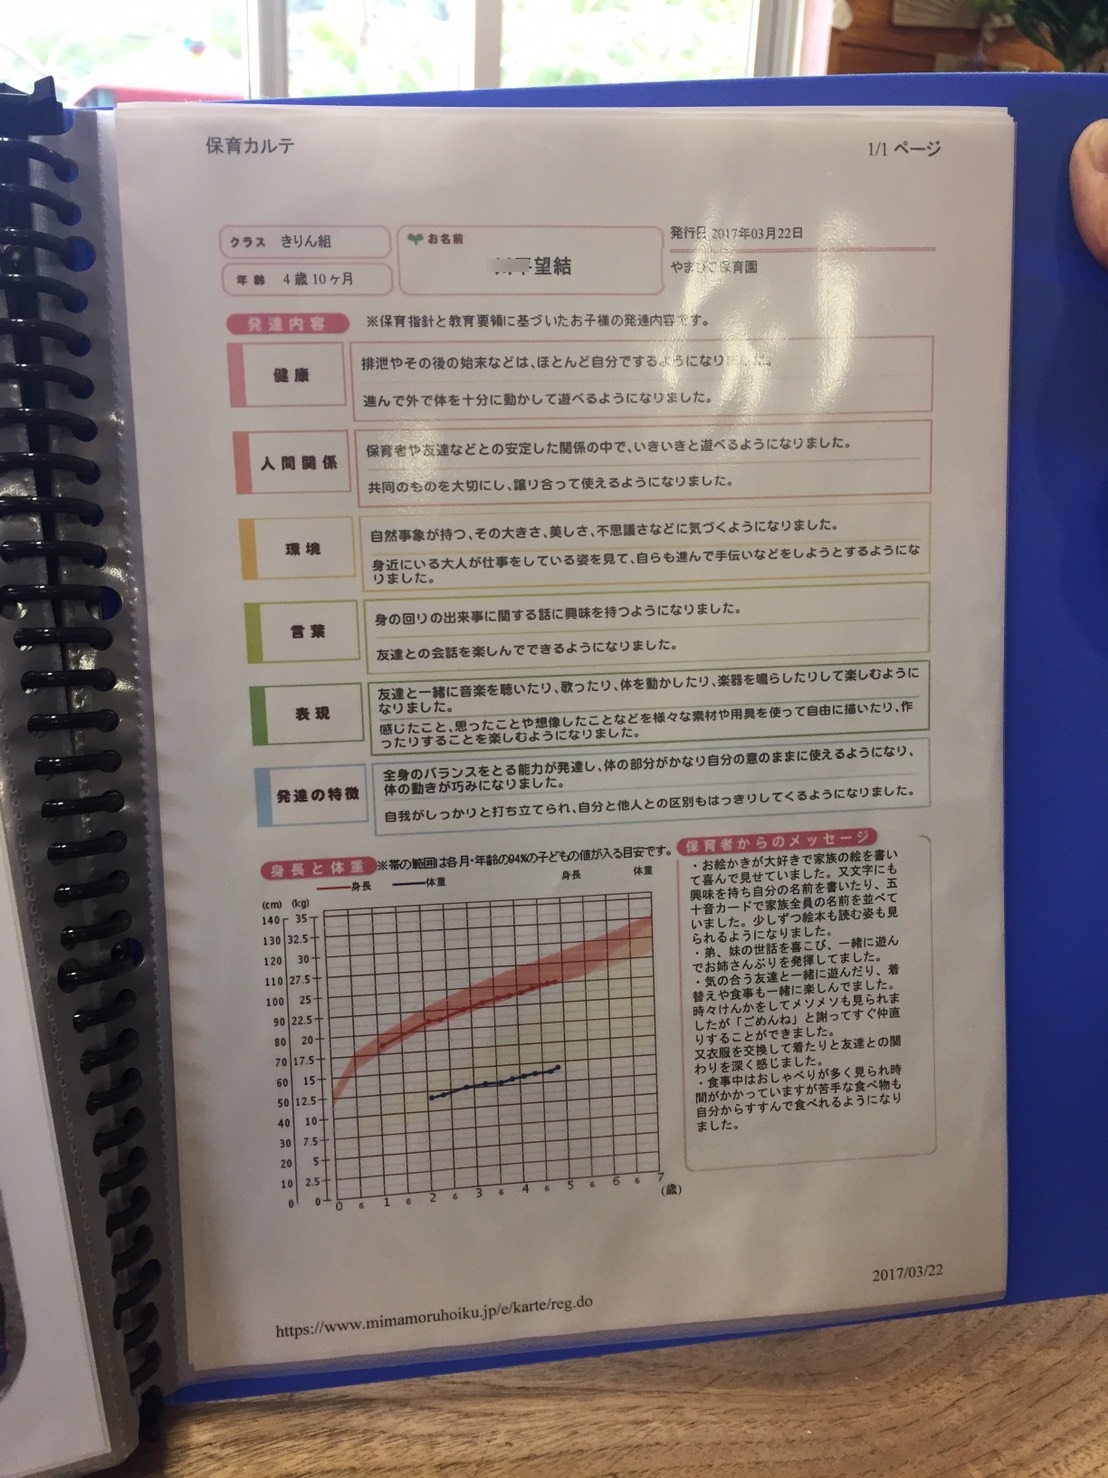 保育カルテ
1/1 ページ
クラス きりん組
お名前
望結
発行日 2017年03月22日
年齢 4歳10ヶ月
やまびこ保育園
発達内容 ※保育指針と教育要領に基づいたお子様の発達内容です。
健康
排泄やその後の始末などは、ほとんど自分でするようになりました。
進んで外で体を十分に動かして遊べるようになりました。
人間関係
保育者や友達などとの安定した関係の中で、いきいきと遊べるようになりました。
共同のものを大切にし、譲り合って使えるようになりました。
環境
自然事象が持つ、その大きさ、美しさ、不思議さなどに気づくようになりました。
身近にいる大人が仕事をしている姿を見て、自らも進んで手伝いなどをしようとするようにな
りました。
言葉
身の回りの出来事に関する話に興味を持つようになりました。
友達との会話を楽しんでできるようになりました。
表現
友達と一緒に音楽を聴いたり、歌ったり、体を動かしたり、楽器を鳴らしたりして楽しむように
なりました。
感じたこと、思ったことや想像したことなどを様々な素材や用具を使って自由に描いたり、作
ったりすることを楽しむようになりました。
発達の特徴
全身のバランスをとる能力が発達し、体の部分がかなり自分の意のままに使えるようになり、
体の動きが巧みになりました。
自我がしっかりと打ち立てられ、自分と他人との区別もはっきりしてくるようになりました。
身長と体重 ※帯の範囲は各月・年齢の94%の子どもの値が入る目安です。
身長 体重 身長 体重
(cm) (kg)
140 35
130 32.5
120 30
110 27.5
100 25
90 22.5
80 20
70 17.5
60 15
50 12.5
40 10
30 7.5
20 5
10 2.5
0 0
0 6 1 6 2 6 3 6 4 6 5 6 6 6 7
(歳)
保育者からのメッセージ
・お絵かきが大好きで家族の絵を書い
て喜んで見せていました。又文字にも
興味を持ち自分の名前を書いたり、五
十音カードで家族全員の名前を並べて
いました。少しずつ絵本も読む姿も見
られるようになりました。
・弟、妹の世話を喜こび、一緒に遊ん
でお姉さんぶりを発揮してました。
・気の合う友達と一緒に遊んだり、着
替えや食事も一緒に楽しんでました。
時々けんかをしてメソメソも見られま
したが「ごめんね」と謝ってすぐ仲直
りすることができました。
又衣服を交換して着たりと友達との関
わりを深く感じました。
・食事中はおしゃべりが多く見られ時
間がかかっていますが苦手な食べ物も
自分からすすんで食べれるようになり
ました。
https://www.mimamoruhoiku.jp/e/karte/reg.do
2017/03/22